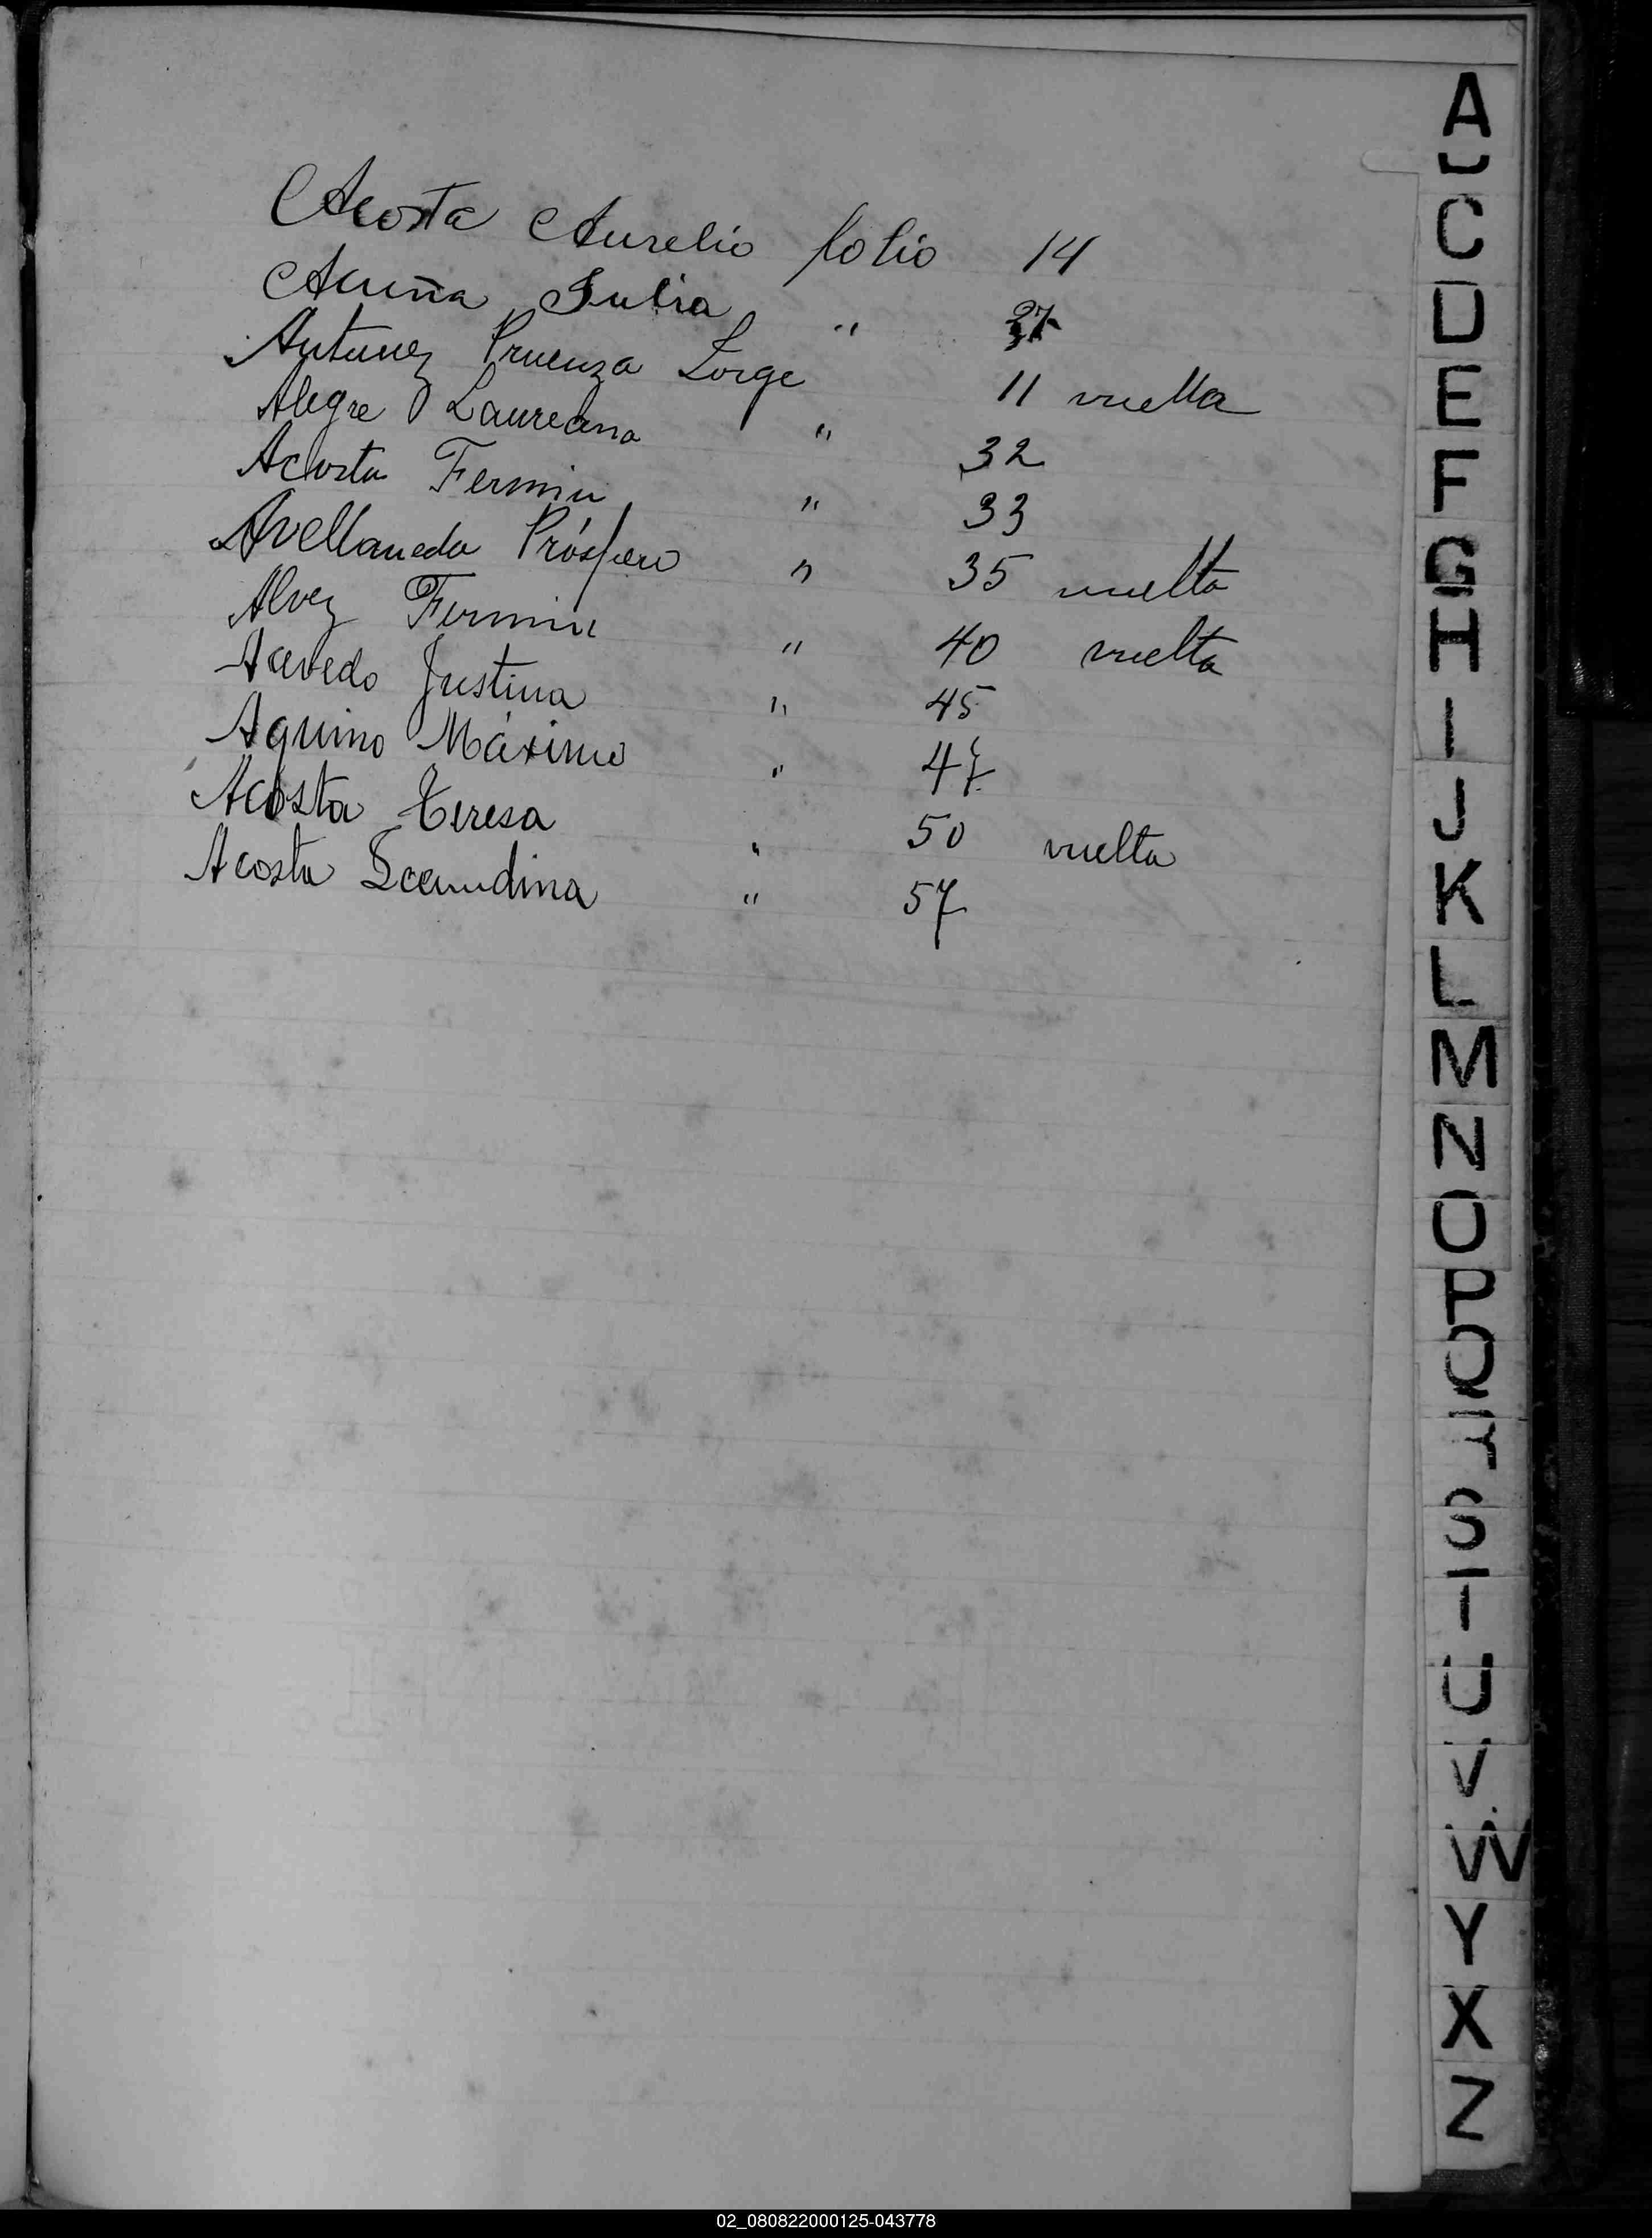 Acosta Aurelio folio 14
Acuña Julia " 27
Antunez Proenza Jorge 11 vuelta
Alegre Laureana " 32
Acosta Fermin " 33
Avellaneda Próspero " 35 vuelta
Alvez Fermin " 40 vuelta
Acevedo Justina " 45
Aquino Máximo " 47
Acosta Teresa " 50 vuelta
Acosta Secundina " 57
A
C
D
E
F
G
H
I
J
K
L
M
N
O
P
Q
S
T
U
V
W
Y
X
Z
02_080822000125-043778